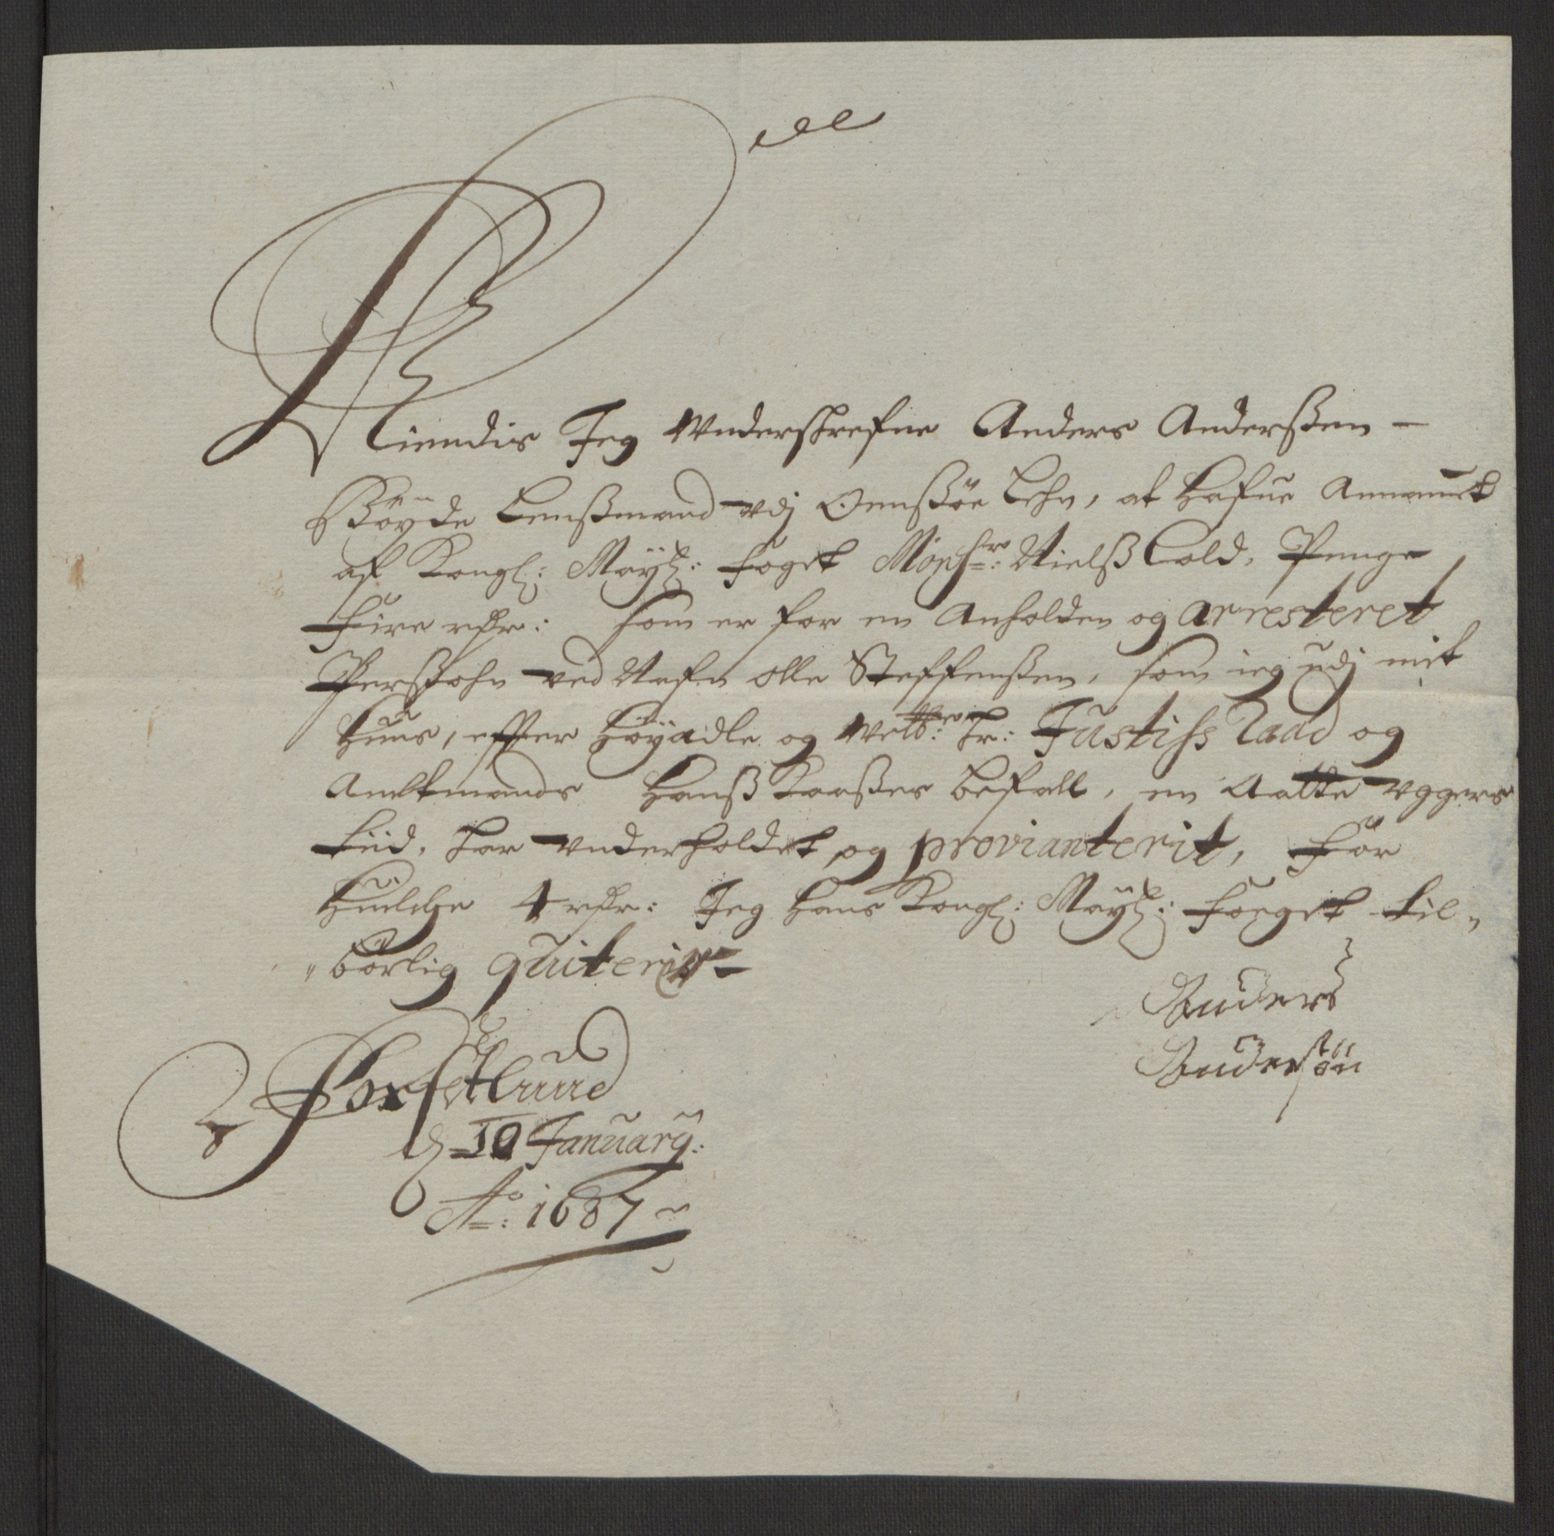 Kiendis Jeg Underschrefne Anders Anderßen -
Böyde Lenßmand udj Onnßöe Lehn, at hafue Annammet
af Kongl: Mayt: foget Monsr: Nielß Cold, Penge
fire rdr: som er for en Anholden og arresteret
Perßohn ved Nafn Olle Steffenßen, som ieg udj mit
huus, effter höyädle og welb:ne hr: Justiss Raad og
Amtmands Hanß Kaaßes befall, en Aatte uggers
tiid, har underholdet, og provianterit, for
huilche 4 rdr: Jeg hans Kongl: Mayt: foeget til„
„börlig quiterer -
Anders
Andersön
Forsetlund
d 10 January:
Ao: 1687